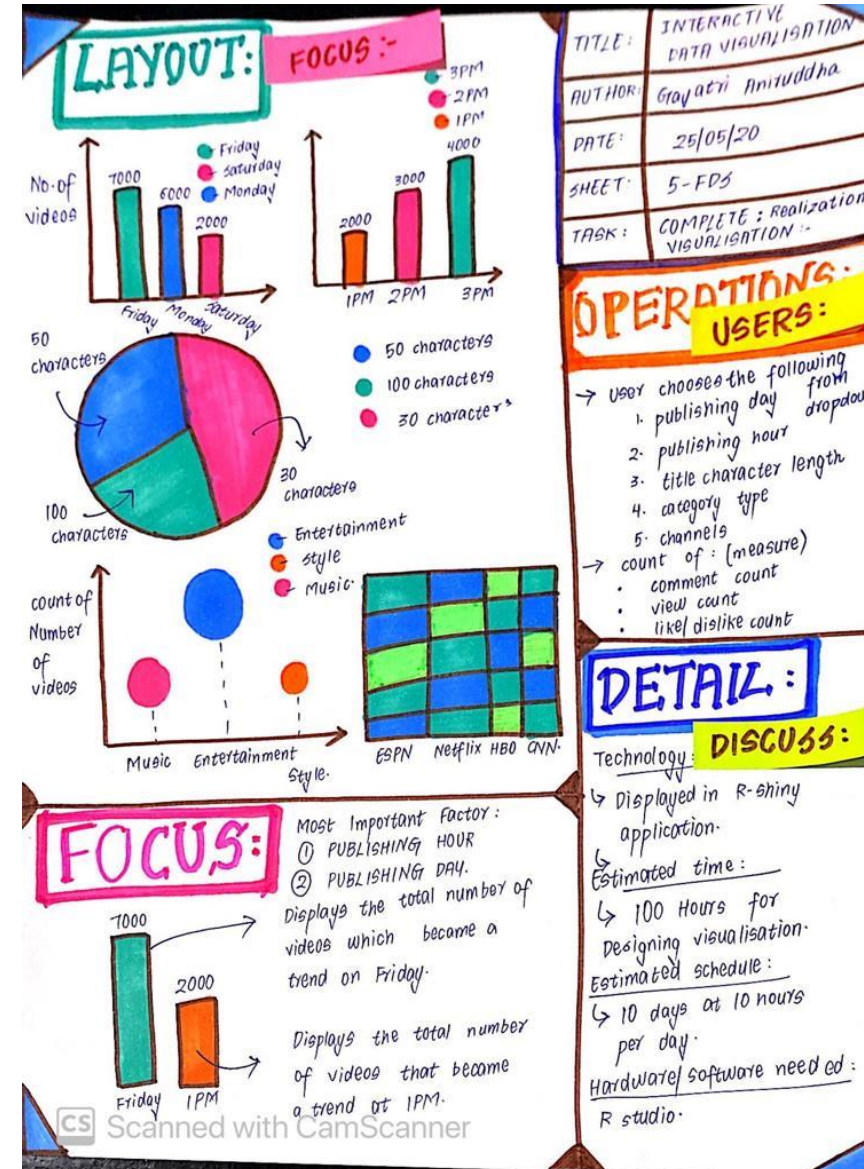 LAYOUT:
FOCUS :-
3PM
2PM
1PM
Friday
Saturday
Monday
No. of
videos
7000
6000
2000
Friday
Monday
Saturday
2000
3000
4000
1PM 2PM 3PM
50
characters
100
characters
30
characters
50 characters
100 characters
30 characters
Entertainment
Style
Music.
count of
Number
of
videos
Music Entertainment
Style.
ESPN Netflix HBO CNN.
FOCUS:
Most Important Factor:
① PUBLISHING HOUR
② PUBLISHING DAY.
Displays the total number of
videos which became a
trend on Friday.
Displays the total number
of videos that became
a trend at 1PM.
7000
2000
Friday 1PM
TITLE: INTERACTIVE
DATA VISUALISATION
AUTHOR: Gayatri Aniruddha
DATE: 25/05/20
SHEET: 5-FDS
TASK: COMPLETE : Realization
VISUALISATION :-
OPERATIONS:
USERS:
→ User chooses the following
from
dropdow
1. publishing day
2. publishing hour
3. title character length
4. category type
5. channels
→ count of : (measure)
• comment count
• view count
• like/dislike count
DETAIL:
DISCUSS:
Technology:
↳ Displayed in R-shiny
application.
↳
Estimated time:
↳ 100 Hours for
Designing visualisation.
Estimated schedule:
↳ 10 days at 10 hours
per day.
Hardware/Software needed:
R studio.
CS Scanned with CamScanner